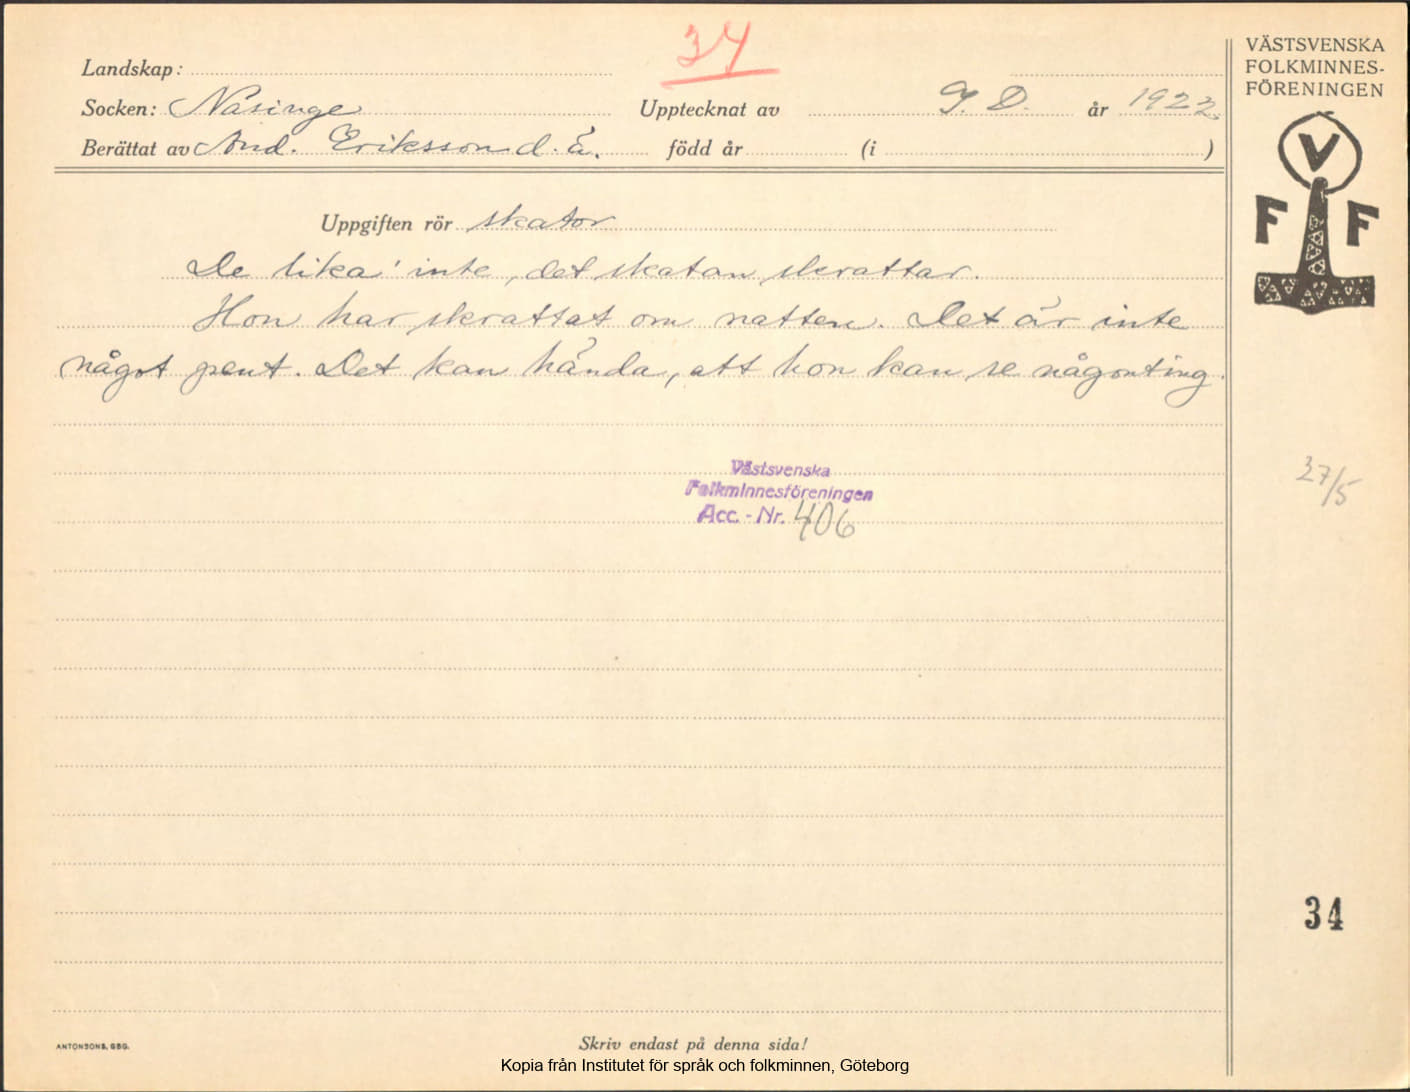 34
VÄSTSVENSKA
FOLKMINNES-
FÖRENINGEN
Landskap:
Socken: Näsinge Upptecknat av G. D. år 1922.
Berättat av And. Eriksson d. ä. född år (i )
V
F F
Uppgiften rör skator
De lika' inte, det skatan skrattar.
Hon har skrattat om natten. Det är inte
något pent. Det kan hända, att hon kan se någonting.
Västsvenska
Folkminnesföreningen
Acc. - Nr. 406
27/5
34
ANTONSONS, GBG.
Skriv endast på denna sida!
Kopia från Institutet för språk och folkminnen, Göteborg